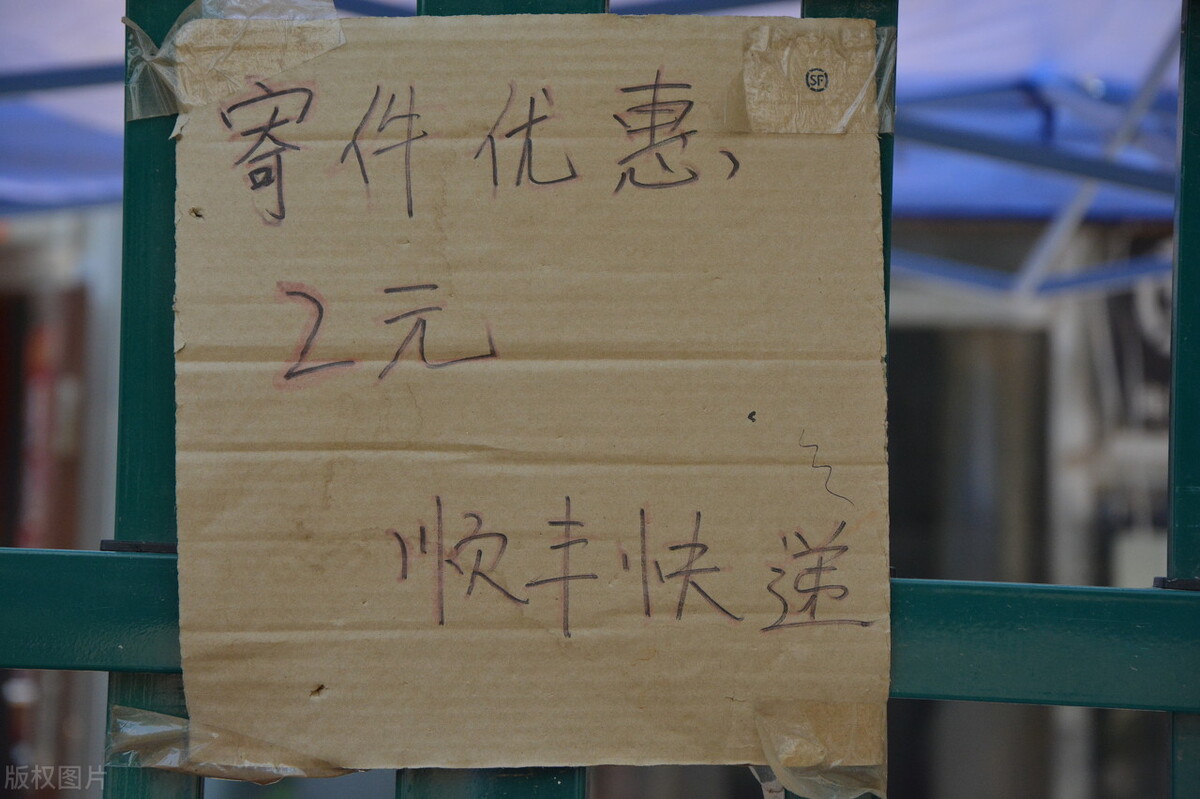 SF
寄件优惠、
2元
顺丰快递
版权图片